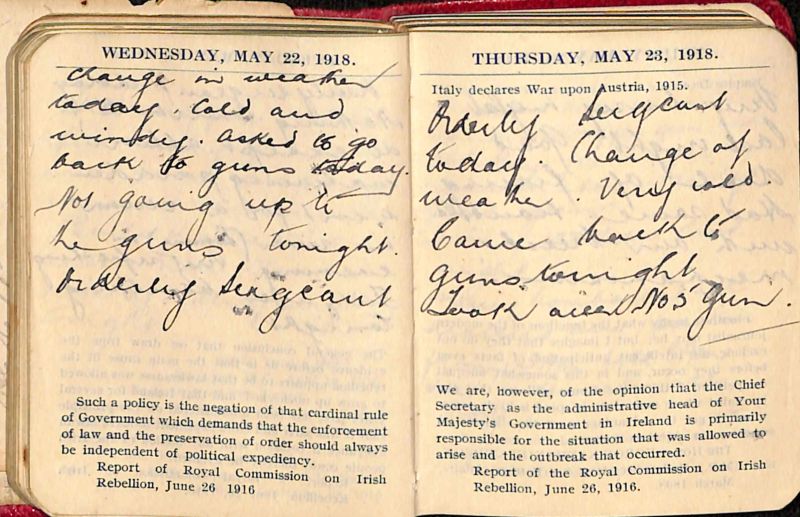 WEDNESDAY, MAY 22, 1918.
Change in weather
today. Cold and
windy. Asked to go
back to guns today.
Not going up to
the guns tonight.
Orderly Sergeant
Such a policy is the negation of that cardinal rule
of Government which demands that the enforcement
of law and the preservation of order should always
be independent of political expediency.
Report of Royal Commission on Irish
Rebellion, June 26 1916
THURSDAY, MAY 23, 1918.
Italy declares War upon Austria, 1915.
Orderly Sergeant
today. Change of
weather. Very cold.
Came back to
guns tonight
Took over No 5 Gun.
We are, however, of the opinion that the Chief
Secretary as the administrative head of Your
Majesty's Government in Ireland is primarily
responsible for the situation that was allowed to
arise and the outbreak that occurred.
Report of the Royal Commission on Irish
Rebellion, June 26, 1916.